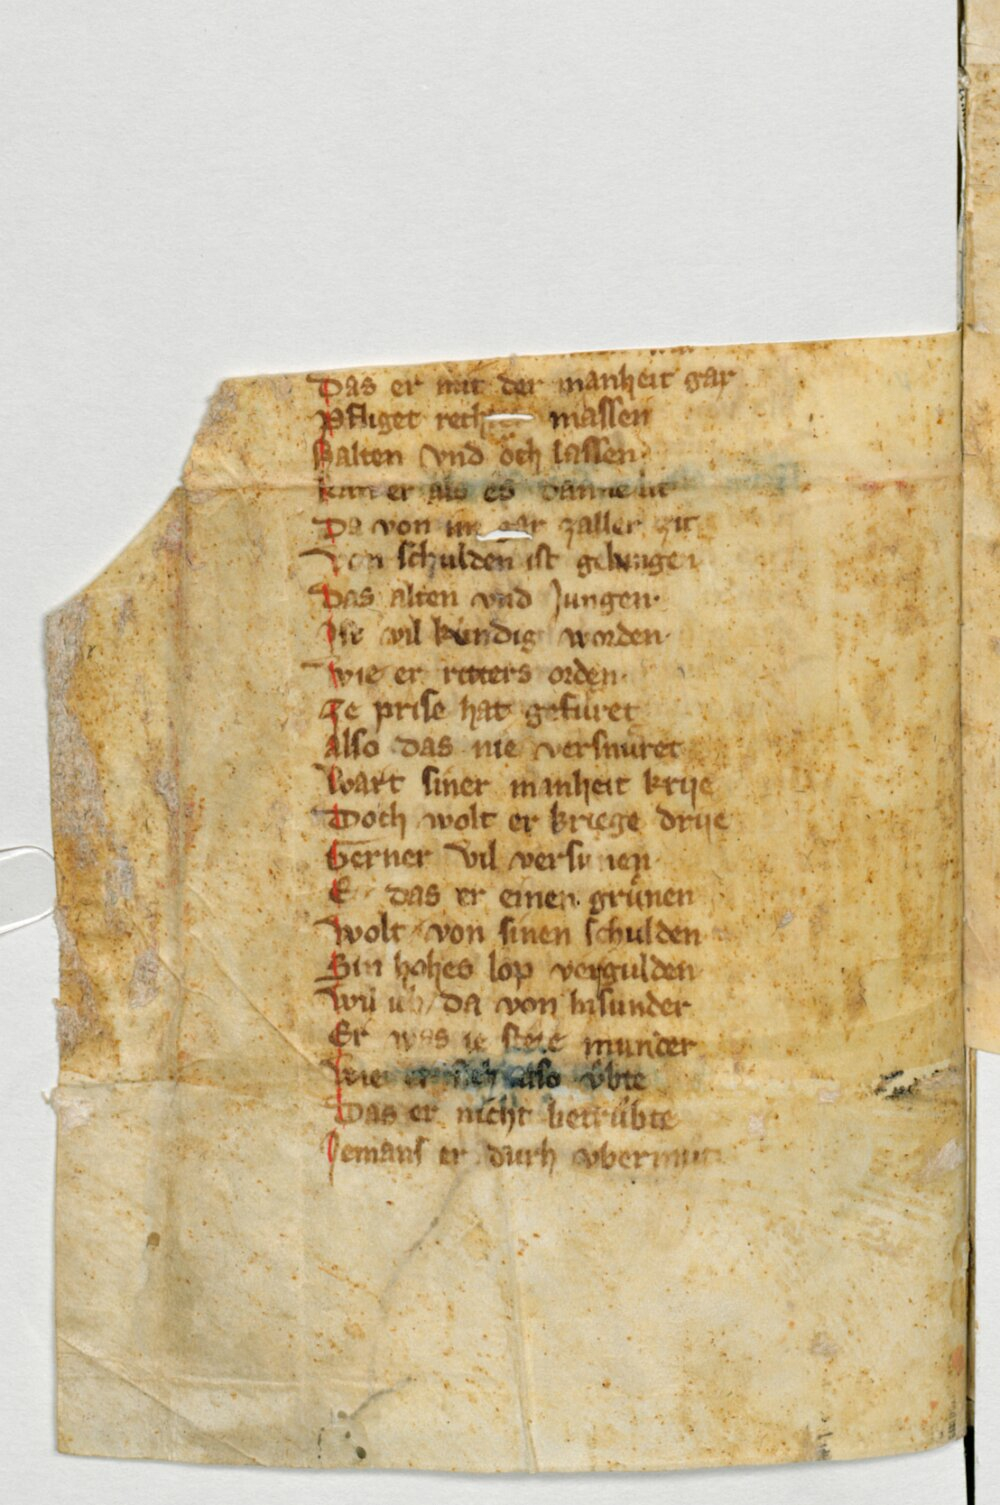 Das er mit der manheit gar
Pfliget rechter massen
Halten vnd öch lassen
kan er als es danne lit
Da von im gar zaller zit
Von schulden ist gelungen
Das alten vnd Jungen
Ist wil kúndig worden
wie er ritters orden
Ze prise hat gefüret
Also das nie versnuret
Wart siner manheit krije
Doch wolt er kriege drije
Gerner vil versünen
E das er einen grünen
wolt von sinen schulden
Sin hohes lop vergulden
Wil da von bisunder
Er was ie stete munder
Wie er sich also übte
Das er nicht betrübte
Iemans er durh vbermut